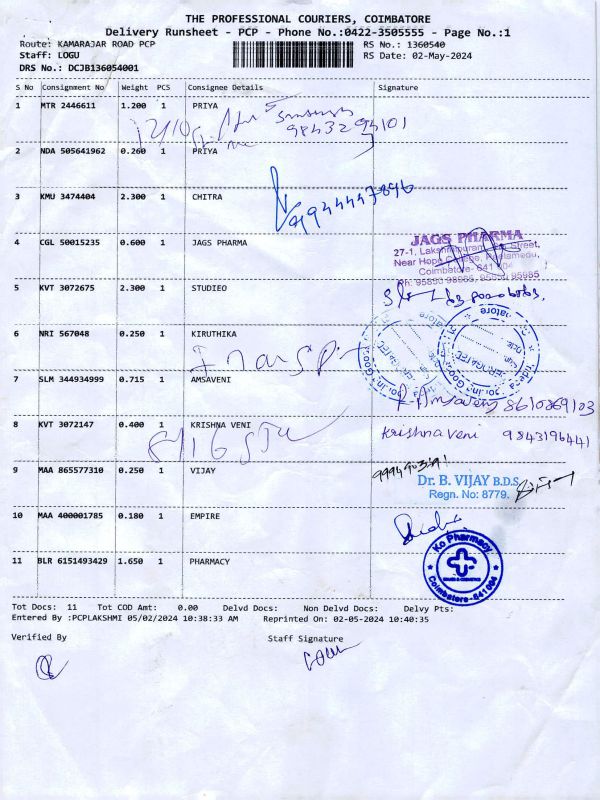 THE PROFESSIONAL COURIERS, COIMBATORE
Delivery Runsheet - PCP - Phone No.:0422-3505555 - Page No.:1
Route: KAMARAJAR ROAD PCP
Staff: LOGU
DRS No.: DCJB136054001
RS No.: 1360540
RS Date: 02-May-2024
S No Consignment No Weight PCS Consignee Details Signature
1 MTR 2446611 1.200 1 PRIYA
2 NDA 505641962 0.260 1 PRIYA
3 KMU 3474404 2.300 1 CHITRA
9944447896
4 CGL 50015235 0.600 1 JAGS PHARMA
JAGS PHARMA
27-1, Lakshmipuram Street,
Near Hope College, Peelamedu,
Coimbatore- 641 004
5 KVT 3072675 2.300 1 STUDIEO
6 NRI 567048 0.250 1 KIRUTHIKA
7 SLM 344934999 0.715 1 AMSAVENI
R. Amsaveni 8610869103
8 KVT 3072147 0.400 1 KRISHNA VENI
Krishna veni 9843196441
9 MAA 865577310 0.250 1 VIJAY
Dr. B. VIJAY B.D.S.
Regn. No: 8779.
10 MAA 400001785 0.180 1 EMPIRE
11 BLR 6151493429 1.650 1 PHARMACY
Ko Pharmacy
Coimbatore-641 004
Tot Docs: 11 Tot COD Amt: 0.00 Delvd Docs: Non Delvd Docs: Delvy Pts:
Entered By :PCPLAKSHMI 05/02/2024 10:38:33 AM Reprinted On: 02-05-2024 10:40:35
Verified By Staff Signature